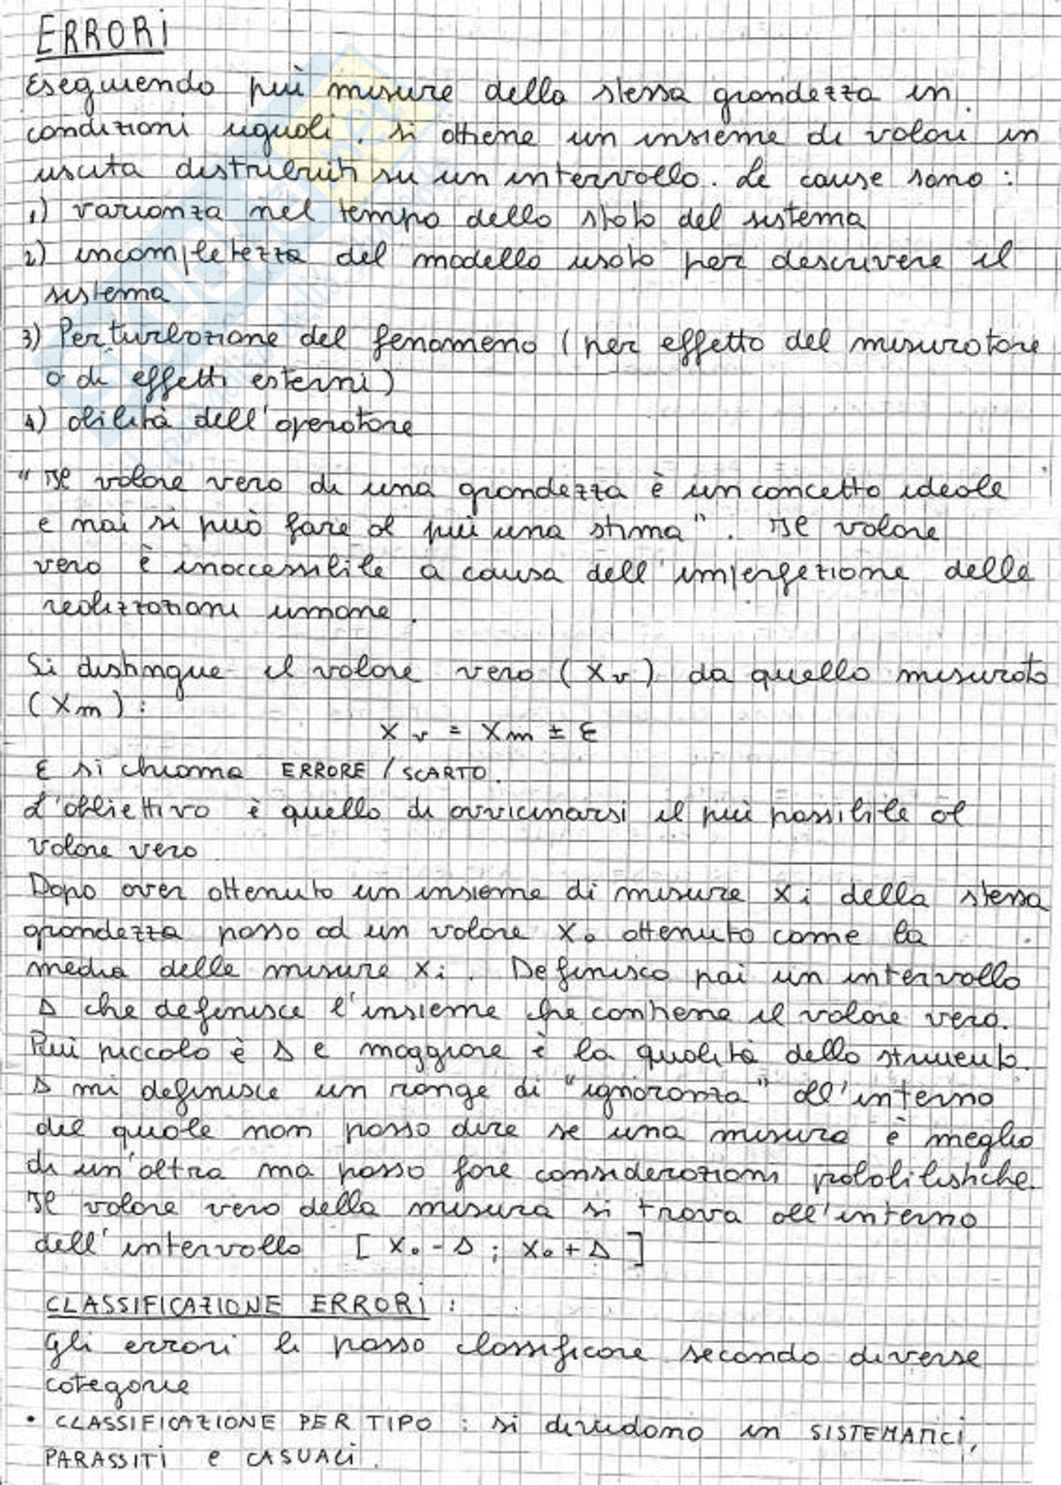 ERRORI
Eseguendo più misure della stessa grandezza in
condizioni uguali, si ottiene un insieme di valori in
uscita distribuiti su un intervallo. Le cause sono :
1) varianza nel tempo dello stato del sistema
2) incompletezza del modello usato per descrivere il
sistema
3) Perturbazione del fenomeno ( per effetto del misuratore
o di effetti esterni )
4) abilità dell'operatore
"Il valore vero di una grandezza è un concetto ideale
e mai si può fare al più una stima". Il valore
vero è inaccessibile a causa dell'imperfezione delle
realizzazioni umane.
Si distingue il valore vero ( Xv ) da quello misurato
( Xm ) :
Xv = Xm ± ε
ε si chiama ERRORE / SCARTO.
L'obbiettivo è quello di avvicinarsi il più possibile al
valore vero
Dopo aver ottenuto un insieme di misure xi della stessa
grandezza passo ad un valore X₀ ottenuto come la
media delle misure xi. Definisco poi un intervallo
Δ che definisce l'insieme che contiene il valore vero.
Più piccolo è Δ e maggiore è la qualità dello strumento.
Δ mi definisce un range di "ignoranza" all'interno
del quale non posso dire se una misura è meglio
di un'altra ma posso fare considerazioni probabilistiche.
Il valore vero della misura si trova all'interno
dell'intervallo [ X₀ - Δ ; X₀ + Δ ]
CLASSIFICAZIONE ERRORI :
Gli errori li posso classificare secondo diverse
categorie
• CLASSIFICAZIONE PER TIPO : si dividono in SISTEMATICI,
PARASSITI e CASUALI.